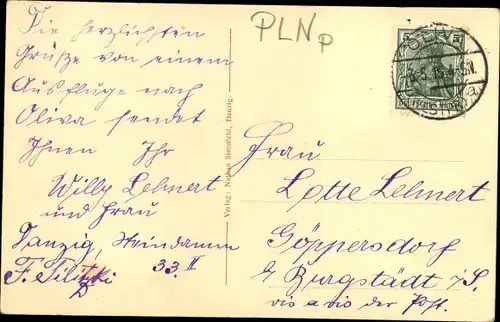 Die herzlichsten
Grüße von einem
Ausfluge nach
Oliva sendet
Ihnen Ihr
Willy Lehnert
und Frau
Danzig, Steindamm
33. II
PLNp
OLIVA
DEUTSCHES REICH
Frau
Lotte Lehnert
Göppersdorf
b/ Burgstädt i/S.
vis a vis der Post.
Verlag: Norbert Sternfeld, Danzig.